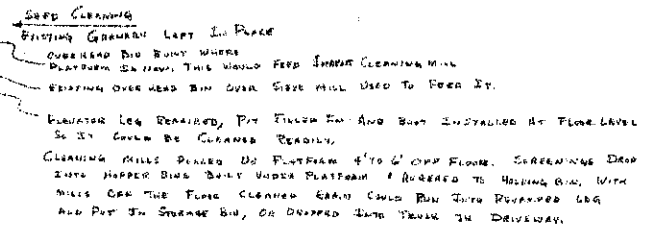 SEED CLEANING
EXISTING GRANARY LEFT IN PLACE
OVERHEAD BIN BUILT WHERE
PLATFORM IS NOW. THIS WOULD FEED CLEANING MILL
EXISTING OVER HEAD BIN OVER SIEVE MILL USED TO FEED IT.
ELEVATOR LEG REPAIRED, PIT FILLED IN AND BOOT INSTALLED AT FLOOR LEVEL
SO IT COULD BE CLEANED READILY.
CLEANING MILLS PLACED ON PLATFORM 4' TO 6' OFF FLOOR. SCREENINGS DROP
INTO HOPPER BINS BUILT UNDER PLATFORM & AUGERED TO HOLDING BIN. WITH
MILLS OFF THE FLOOR CLEANED GRAIN COULD RUN INTO REPAIRED LEG
AND PUT IN STORAGE BIN, OR DROPPED INTO TRUCK IN DRIVEWAY.